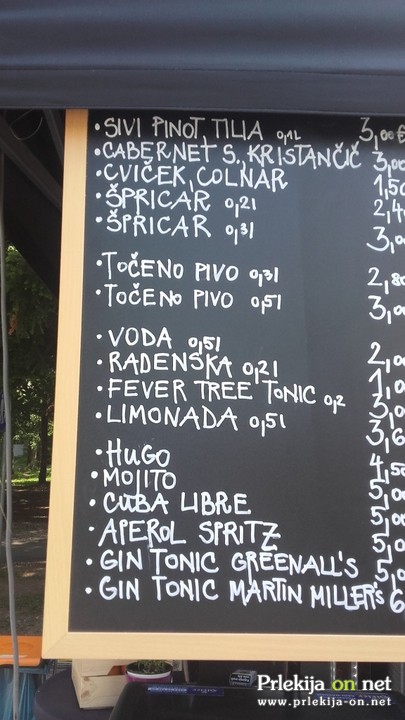 • SIVI PINOT, TILIA 0,1L 3,00€
• CABERNET S, KRISTANČIČ 3,00
• CVIČEK, COLNAR 1,50
• ŠPRICAR 0,2l 2,4
• ŠPRICAR 0,3l 3,0
• TOČENO PIVO 0,3l 2,80
• TOČENO PIVO 0,5l 3,0
• VODA 0,5l 2,0
• RADENSKA 0,2l 1,0
• FEVER TREE TONIC 0,2 3,0
• LIMONADA 0,5l 3,6
• HUGO 4,50
• MOJITO 5,0
• CUBA LIBRE 5,0
• APEROL SPRITZ 5,0
• GIN TONIC GREENALL'S 5,0
• GIN TONIC MARTIN MILLER'S 6
Prlekija on net
www.prlekija-on.net